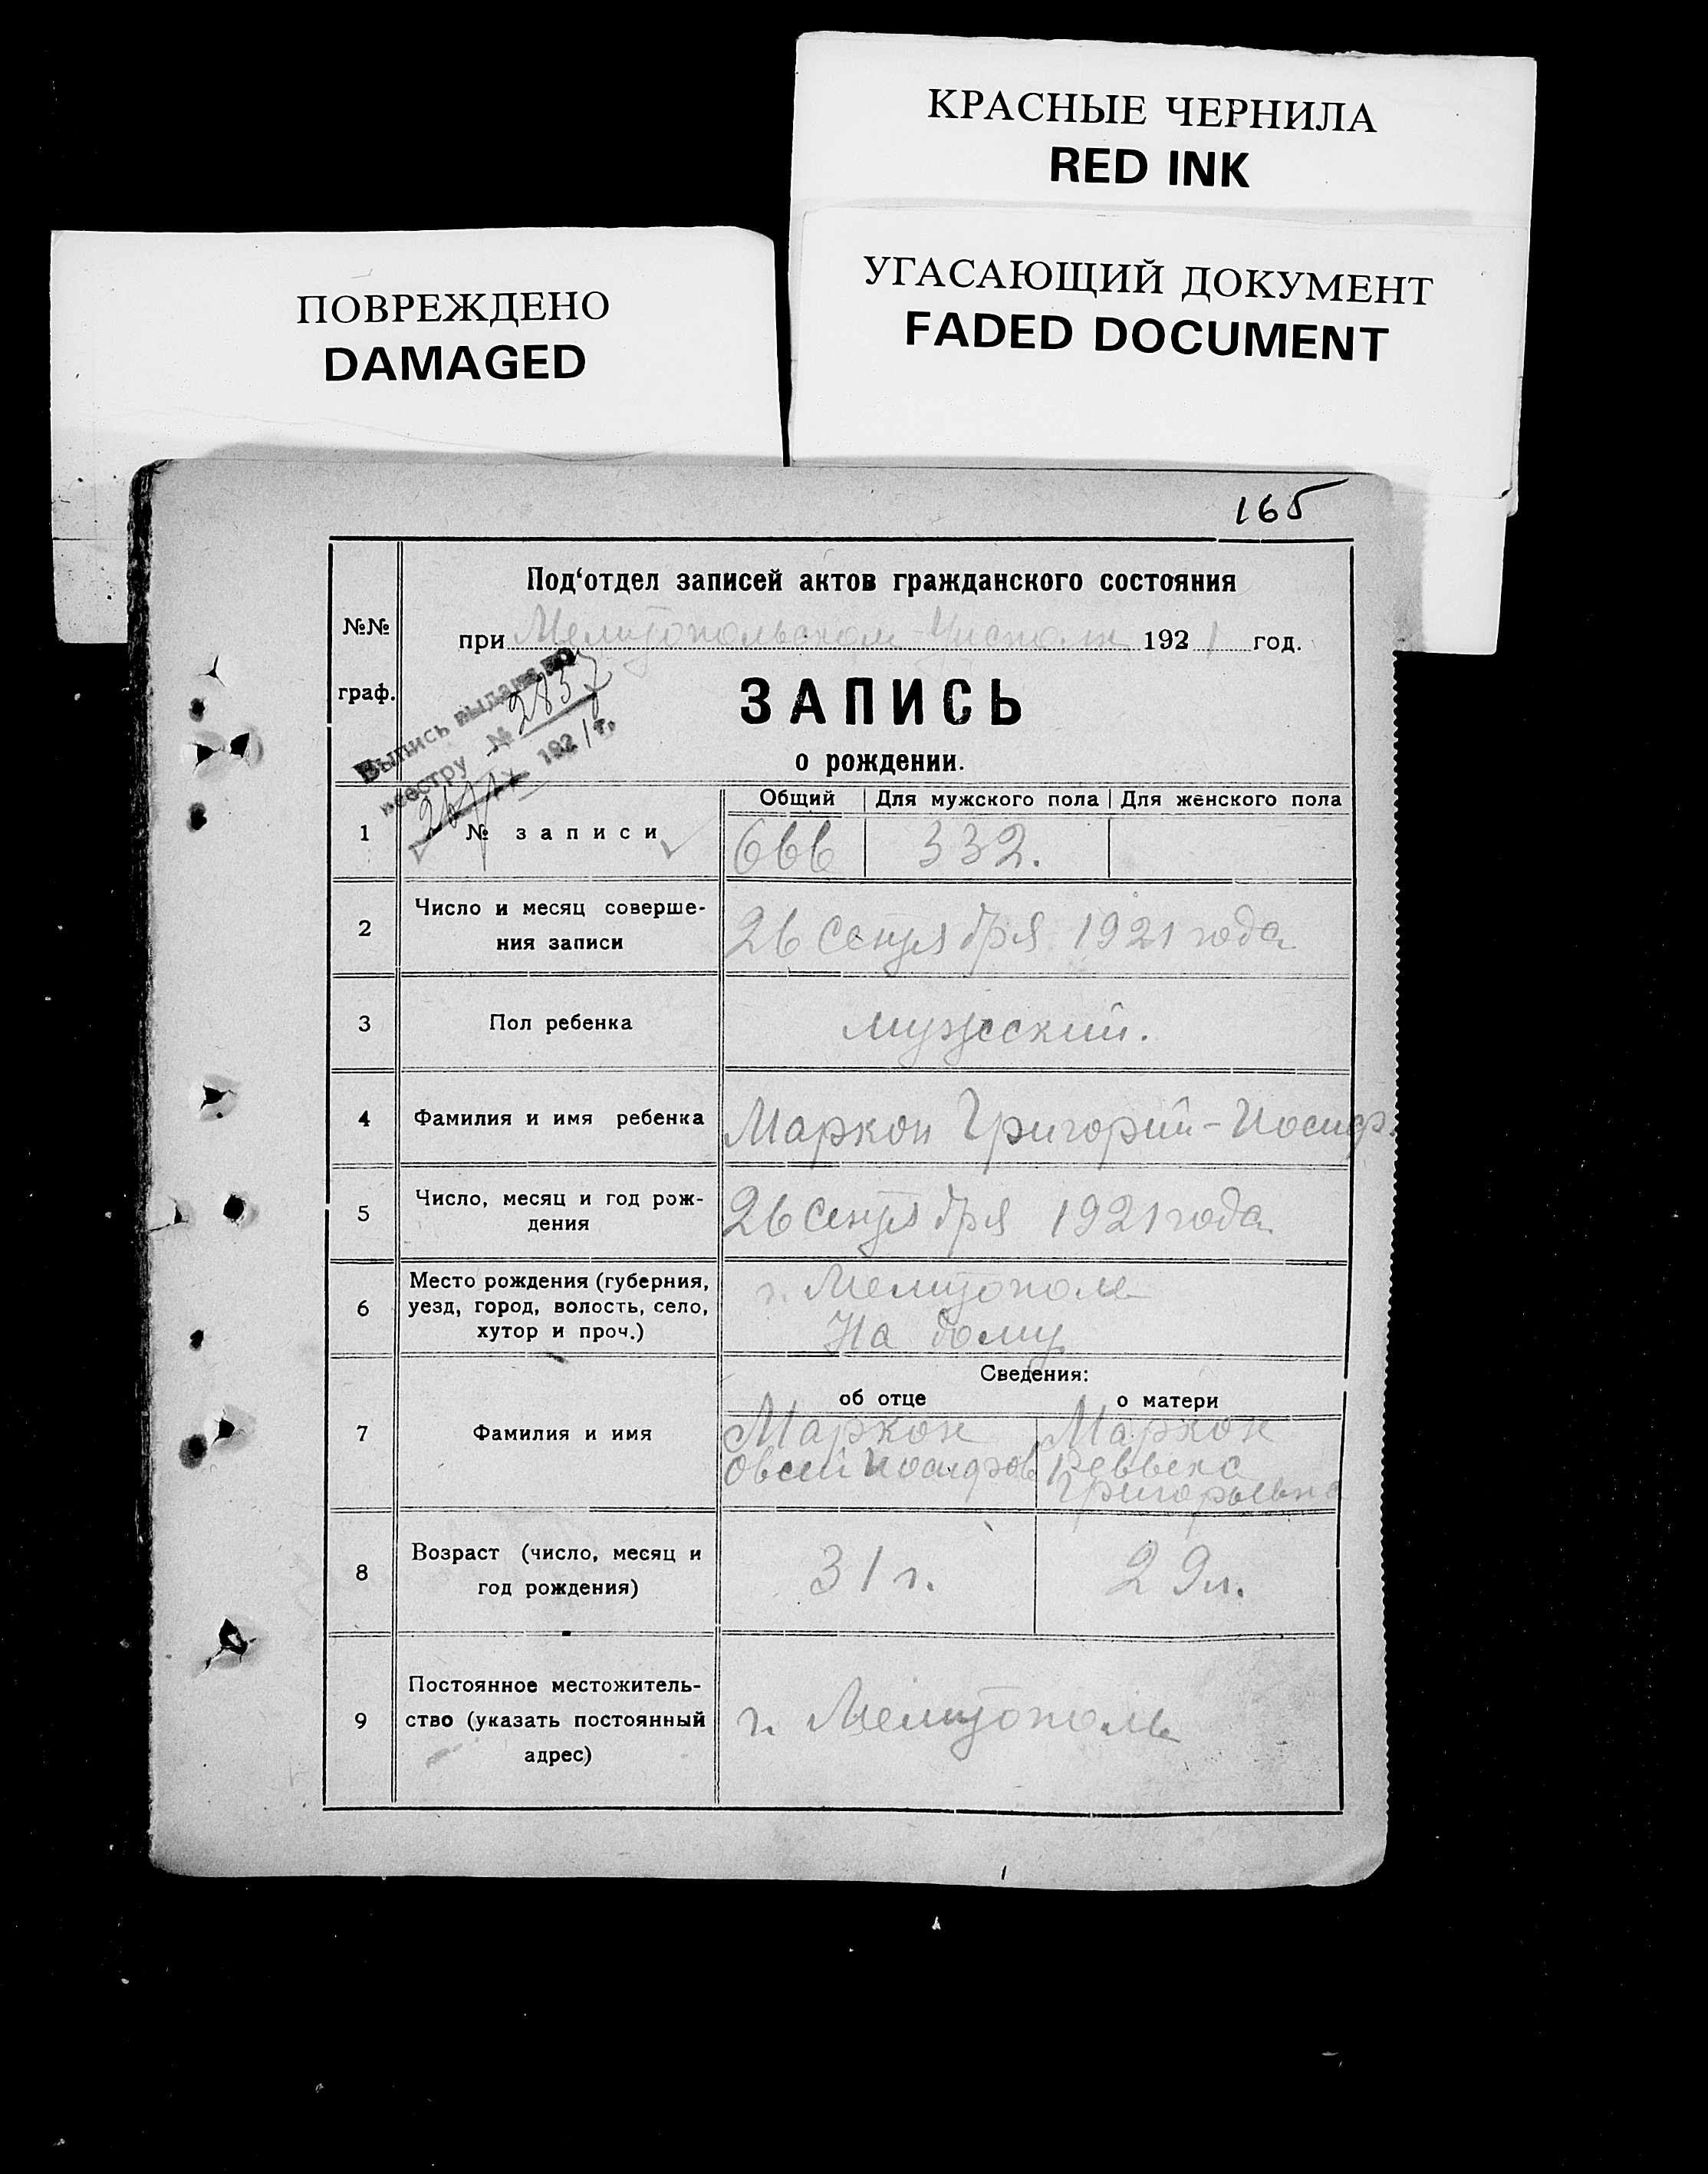 КРАСНЫЕ ЧЕРНИЛА
RED INK
УГАСАЮЩИЙ ДОКУМЕНТ
FADED DOCUMENT
ПОВРЕЖДЕНО
DAMAGED
165
№№
граф.
Под‘отдел записей актов гражданского состояния
при Мелитопольском 1921 год.
ЗАПИСЬ
о рождении.
Выпись выдана по
реестру № 2857
1921 г.
Общий Для мужского пола Для женского пола
1 № записи 666 332.
2 Число и месяц соверше-
ния записи
26 сентября 1921 года
3 Пол ребенка мужеский.
4 Фамилия и имя ребенка Маркон Григорий-Иосиф.
5 Число, месяц и год рож-
дения
26 сентября 1921 года
6 Место рождения (губерния,
уезд, город, волость, село,
хутор и проч.)
г. Мелитополь
На дому
Сведения:
об отце о матери
7 Фамилия и имя
Маркон Маркон
Овсей Иосифов Реввека
Григорьевна
8 Возраст (число, месяц и
год рождения)
31 г. 29 л.
9 Постоянное местожитель-
ство (указать постоянный
адрес)
г. Мелитополь